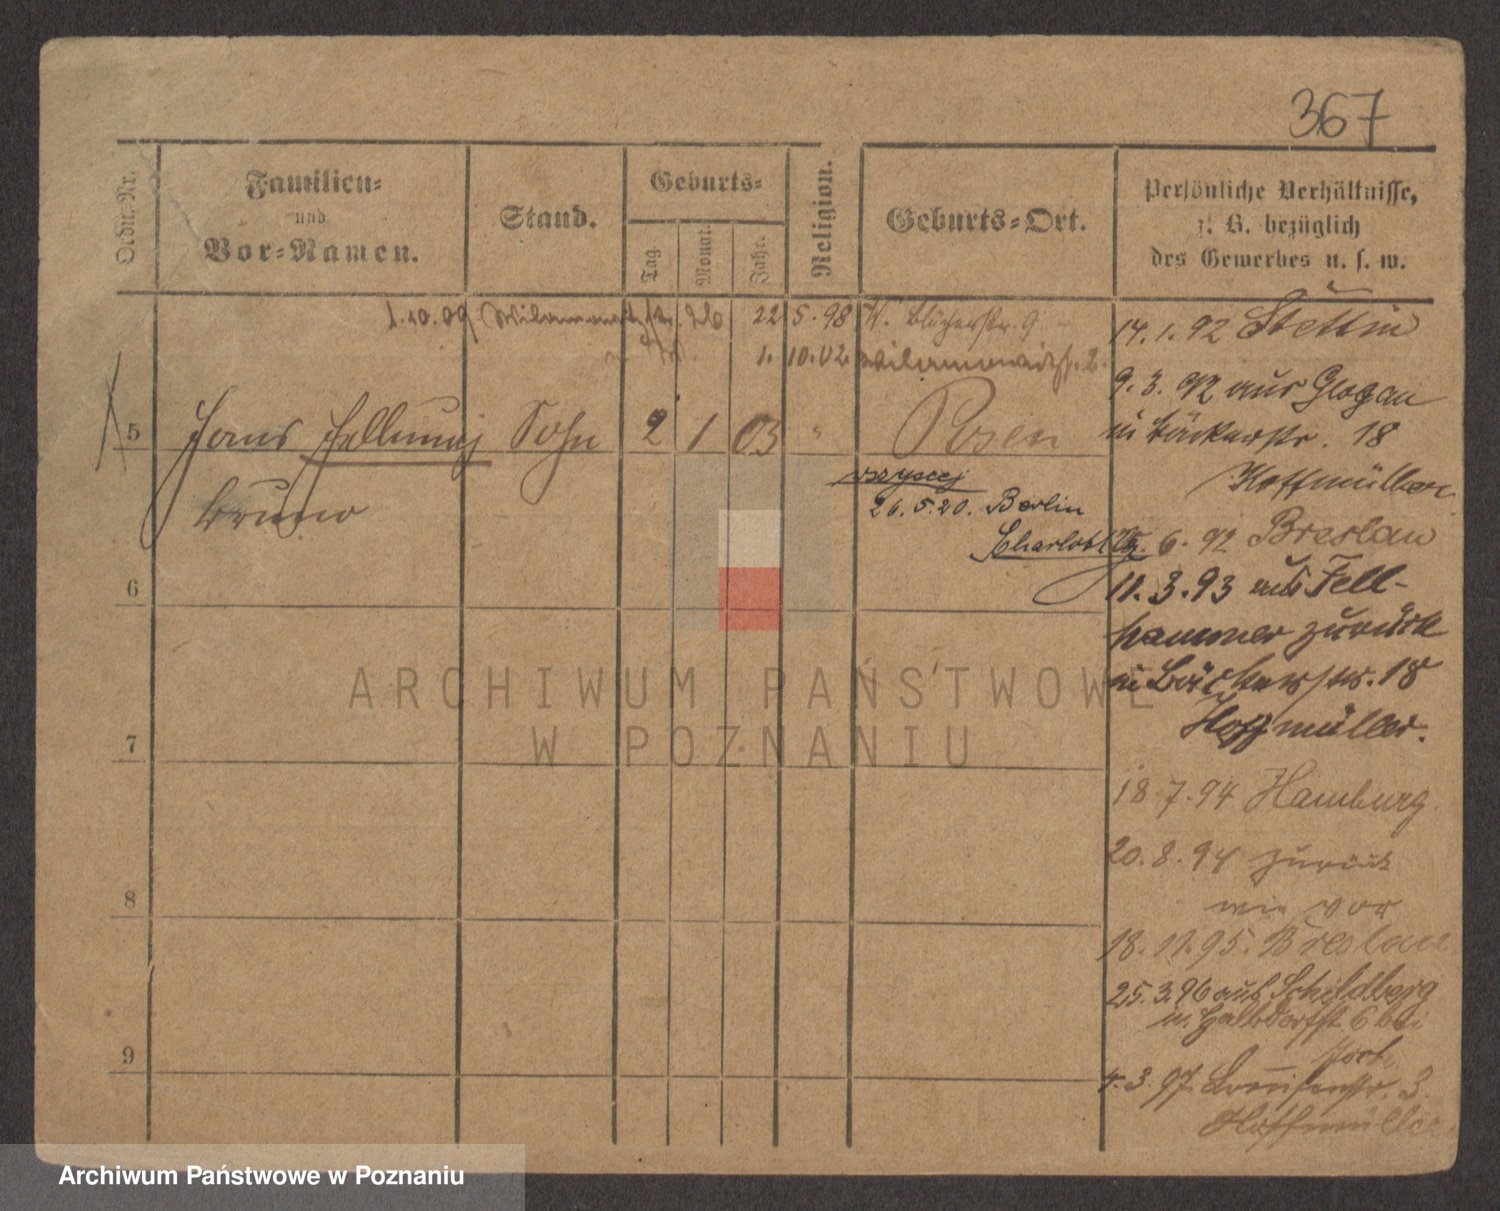 367
Ordn.-Nr.
Familien-
und
Vor-Namen.
Stand.
Geburts-
Tag.
Monat.
Jahr.
Religion.
Geburts-Ort.
Persönliche Verhältnisse,
z. B. bezüglich
des Gewerbes u. s. w.
1.10.09 26 22 5.98 W. Blücherstr. 9
1. 10.02.
5 Hans Hellmuth Sohn 2 1 03 " Posen
Bruno
wszyscy
26.5.20. Berlin
Charlottbg.
6
7
8
9
14.1.92 Stettin
9.3.92 aus Glogau
in Bäckerstr. 18
Hoffmüller.
6.92 Breslau
11.3.93 aus Fell-
hammer zurück
in Bäckerstr. 18
Hoffmüller.
18.7.94 Hamburg
20.8.94 zurück
wie vor
18.11.95. Breslau
25.3.96 aus Schildberg
in Halbdorfst. 6 bei
4.3.97 Louisenstr. 3.
Hoffmüller
ARCHIWUM PAŃSTWOWE
W POZNANIU
Archiwum Państwowe w Poznaniu